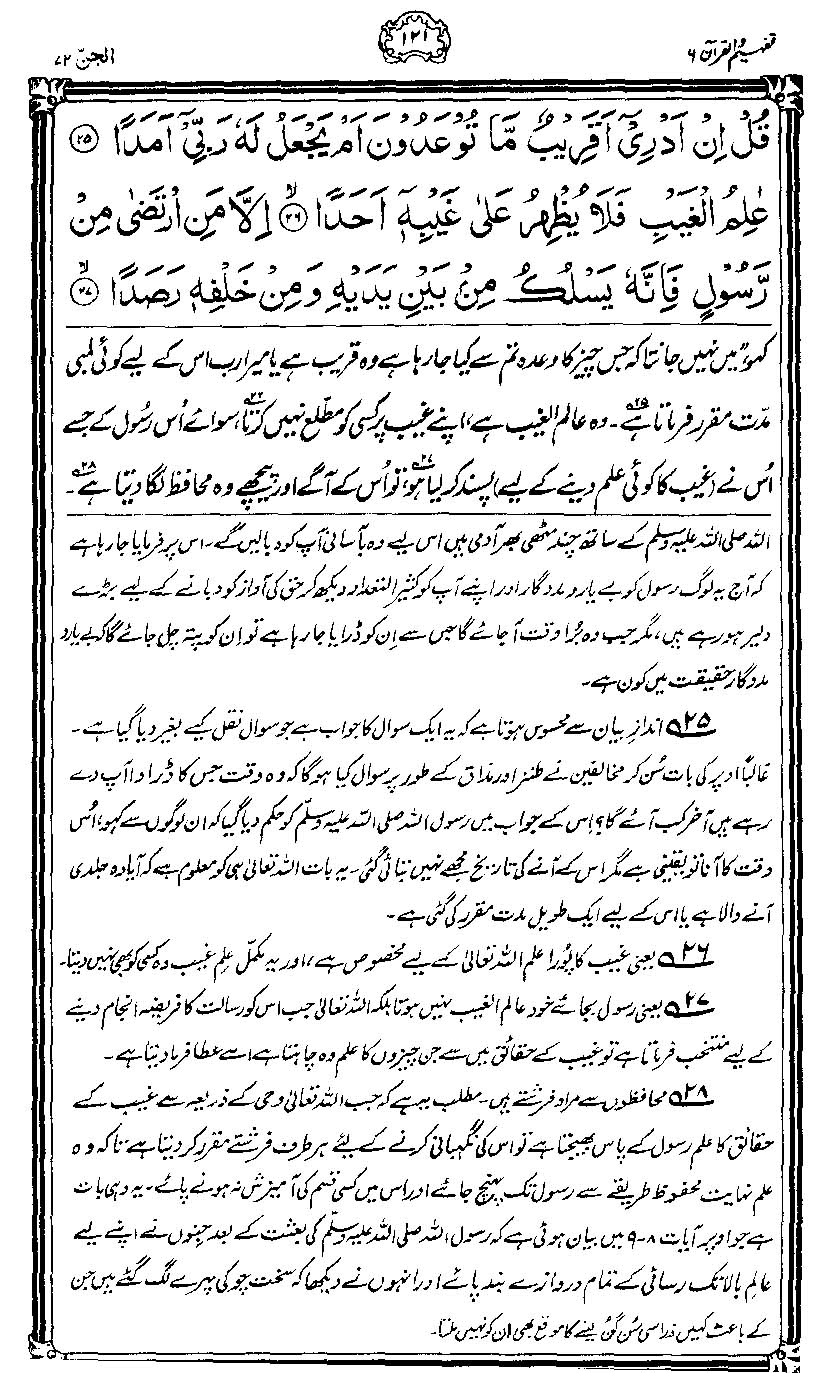 تفہیم القرآن ۶
۱۲۱
الجنّ ۷۲
قُلْ اِنْ اَدْرِیْۤ اَقَرِیْبٌ مَّا تُوْعَدُوْنَ اَمْ یَجْعَلُ لَهٗ رَبِّیْۤ اَمَدًا ۲۵
عٰلِمُ الْغَیْبِ فَلَا یُظْهِرُ عَلٰی غَیْبِهٖۤ اَحَدًا ۲۶ اِلَّا مَنِ ارْتَضٰی مِنْ
رَّسُوْلٍ فَاِنَّهٗ یَسْلُكُ مِنْۢ بَیْنِ یَدَیْهِ وَمِنْ خَلْفِهٖ رَصَدًا ۲۷
کہو، "میں نہیں جانتا کہ جس چیز کا وعدہ تم سے کیا جا رہا ہے وہ قریب ہے یا میرا رب اس کے لیے کوئی لمبی
مدّت مقرر فرماتا ہے۲۵۔ وہ عالم الغیب ہے، اپنے غیب پر کسی کو مطّلع نہیں کرتا۲۶، سوائے اُس رسُول کے جسے
اُس نے (غیب کا کوئی علم دینے کے لیے) پسند کر لیا ہو۲۷، تو اُس کے آگے اور پیچھے وہ محافظ لگا دیتا ہے۲۸۔
اللہ صلی اللہ علیہ وسلم کے ساتھ چند مٹھی بھر آدمی ہیں اس لیے وہ بآسانی آپ کو دبا لیں گے۔ اس پر فرمایا جا رہا ہے
کہ آج یہ لوگ رسول کو بے یار و مددگار اور اپنے آپ کو کثیر التعداد دیکھ کر حق کی آواز کو دبانے کے لیے بڑے
دلیر ہو رہے ہیں، مگر جب وہ بُرا وقت آ جائے گا جس سے اِن کو ڈرایا جا رہا ہے تو اِن کو پتہ چل جائے گا کہ بے یار و
مددگار حقیقت میں کون ہے۔
۲۵ اندازِ بیان سے محسوس ہوتا ہے کہ یہ ایک سوال کا جواب ہے جو سوال نقل کیے بغیر دیا گیا ہے۔
غالباً اوپر کی بات سُن کر مخالفین نے طنز اور مذاق کے طور پر سوال کیا ہوگا کہ وہ وقت جس کا ڈراوا آپ دے
رہے ہیں آخر کب آئے گا؟ اِس کے جواب میں رسول اللہ صلی اللہ علیہ وسلّم کو حکم دیا گیا کہ ان لوگوں سے کہو، اُس
وقت کا آنا تو یقینی ہے مگر اس کے آنے کی تاریخ مجھے نہیں بتائی گئی۔ یہ بات اللہ تعالیٰ ہی کو معلوم ہے کہ آیا وہ جلدی
آنے والا ہے یا اس کے لیے ایک طویل مدت مقرر کی گئی ہے۔
۲۶ یعنی غیب کا پُورا علم اللہ تعالیٰ کے لیے مخصوص ہے، اور یہ مکمّل علمِ غیب وہ کسی کو بھی نہیں دیتا۔
۲۷ یعنی رسول بجائے خود عالم الغیب نہیں ہوتا بلکہ اللہ تعالیٰ جب اس کو رسالت کا فریضہ انجام دینے
کے لیے منتخب فرماتا ہے تو غیب کے حقائق میں سے جن چیزوں کا علم وہ چاہتا ہے اسے عطا فرما دیتا ہے۔
۲۸ محافظوں سے مراد فرشتے ہیں۔ مطلب یہ ہے کہ جب اللہ تعالیٰ وحی کے ذریعہ سے غیب کے
حقائق کا علم رسول کے پاس بھیجتا ہے تو اس کی نگہبانی کرنے کے لئے ہر طرف فرشتے مقرر کر دیتا ہے تاکہ وہ
علم نہایت محفوظ طریقے سے رسول تک پہنچ جائے اور اس میں کسی قسم کی آمیزش نہ ہونے پائے۔ یہ وہی بات
ہے جو اوپر آیات ۸-۹ میں بیان ہوئی ہے کہ رسول اللہ صلی اللہ علیہ وسلّم کی بعثت کے بعد جِنوں نے اپنے لیے
عالمِ بالا تک رسائی کے تمام دروازے بند پائے اور انہوں نے دیکھا کہ سخت چوکی پہرے لگ گئے ہیں جن
کے باعث کہیں ذرا سی سُن گُن لینے کا موقع بھی ان کو نہیں ملتا۔